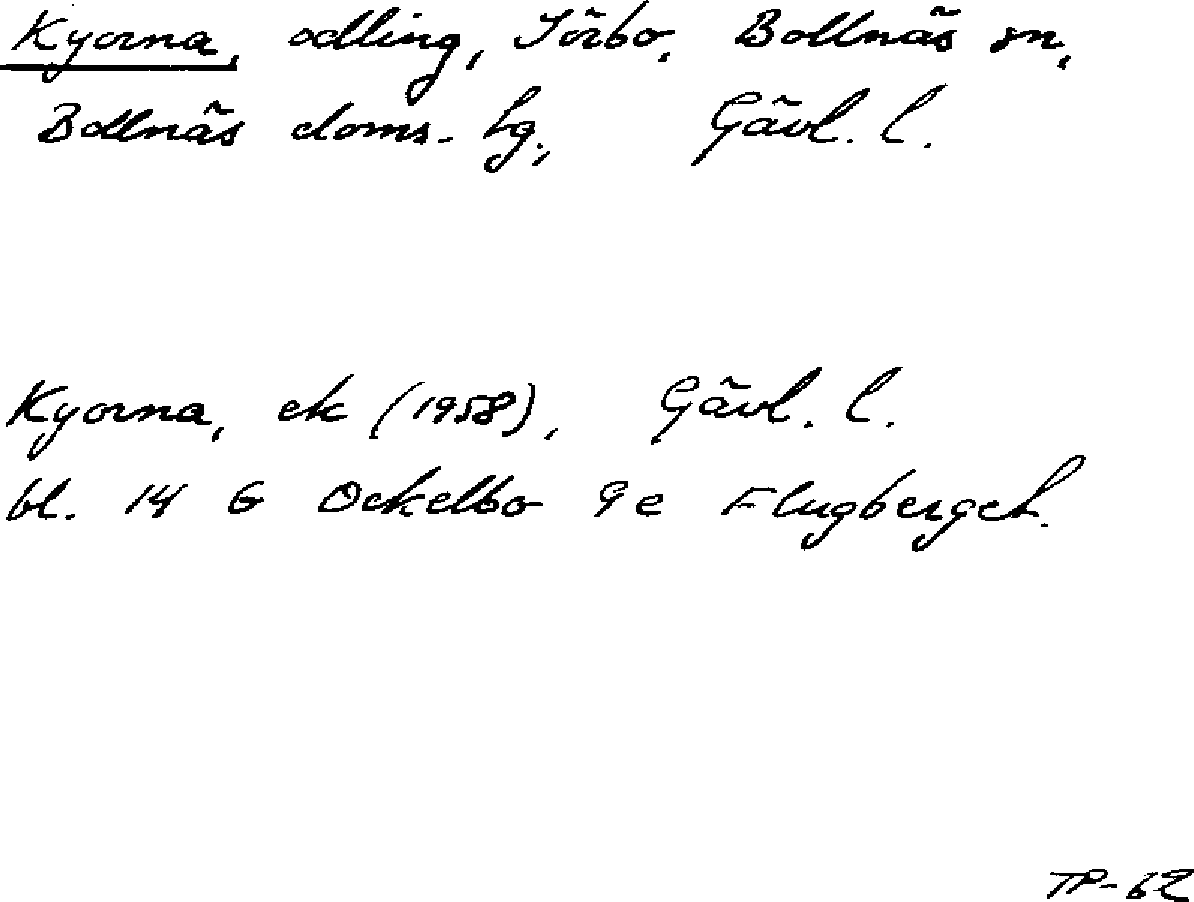 Kyorna, odling, Sörbo, Bollnäs sn,
Bollnäs doms. hg., Gävl. l.
Kyorna, ek (1958), Gävl. l.
bl. 14 G Ockelbo 9e Flugberget.
TP-62